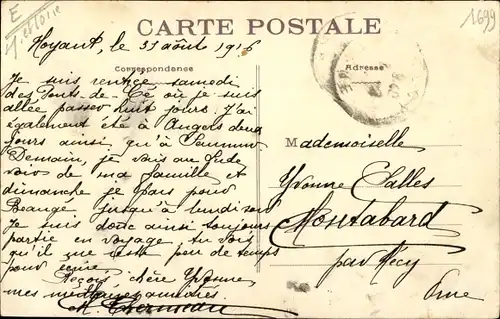 E
M. et Loire
1699
CARTE POSTALE
Noyant, le 31 août 1916
Correspondance
Adresse
Je suis rentrée samedi
des Ponts-de-Cé où je suis
allée passer huit jours. J'ai
également été à Angers deux
jours ainsi, qu'à Saumur
Demain, je vais au Lude
voir de ma famille et
dimanche je pars pour
Beaugé jusqu'à lundi soir
Je suis donc ainsi toujours
partie en voyage tu vois
qu'il me reste peu de temps
pour écrire
Reçois, chère Yvonne
mes meilleures amitiés.
Mademoiselle
Yvonne Salles
Montabard
par Nécy
Orne